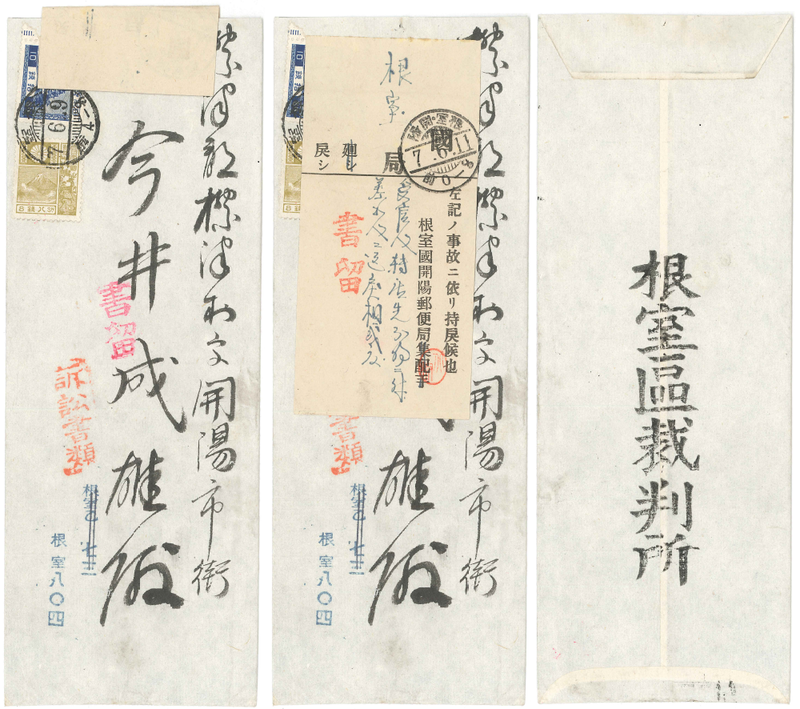 標津郡標津村字開陽市街
今井成雄殿
書留
訴訟書類
根室八〇四
標津郡標津村字開陽市街
雄殿
根室
局
廻シ
戻シ
左記ノ事故ニ依リ持戻候也
根室國開陽郵便局集配手
書留
7.6.11
書類
根室八〇四
根室區裁判所